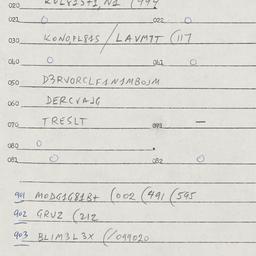 020
021 022
030 KONOPL81S/LAVM7T (117
040 041
050 D3RVORCLF1N1MBOJM
060 DERCVAJG
070 TRESLT —
080
081 082
901 MODG1G81B+ (002 (491 (595
902 GRUZ (212
903 BL1M3L3X (/099020